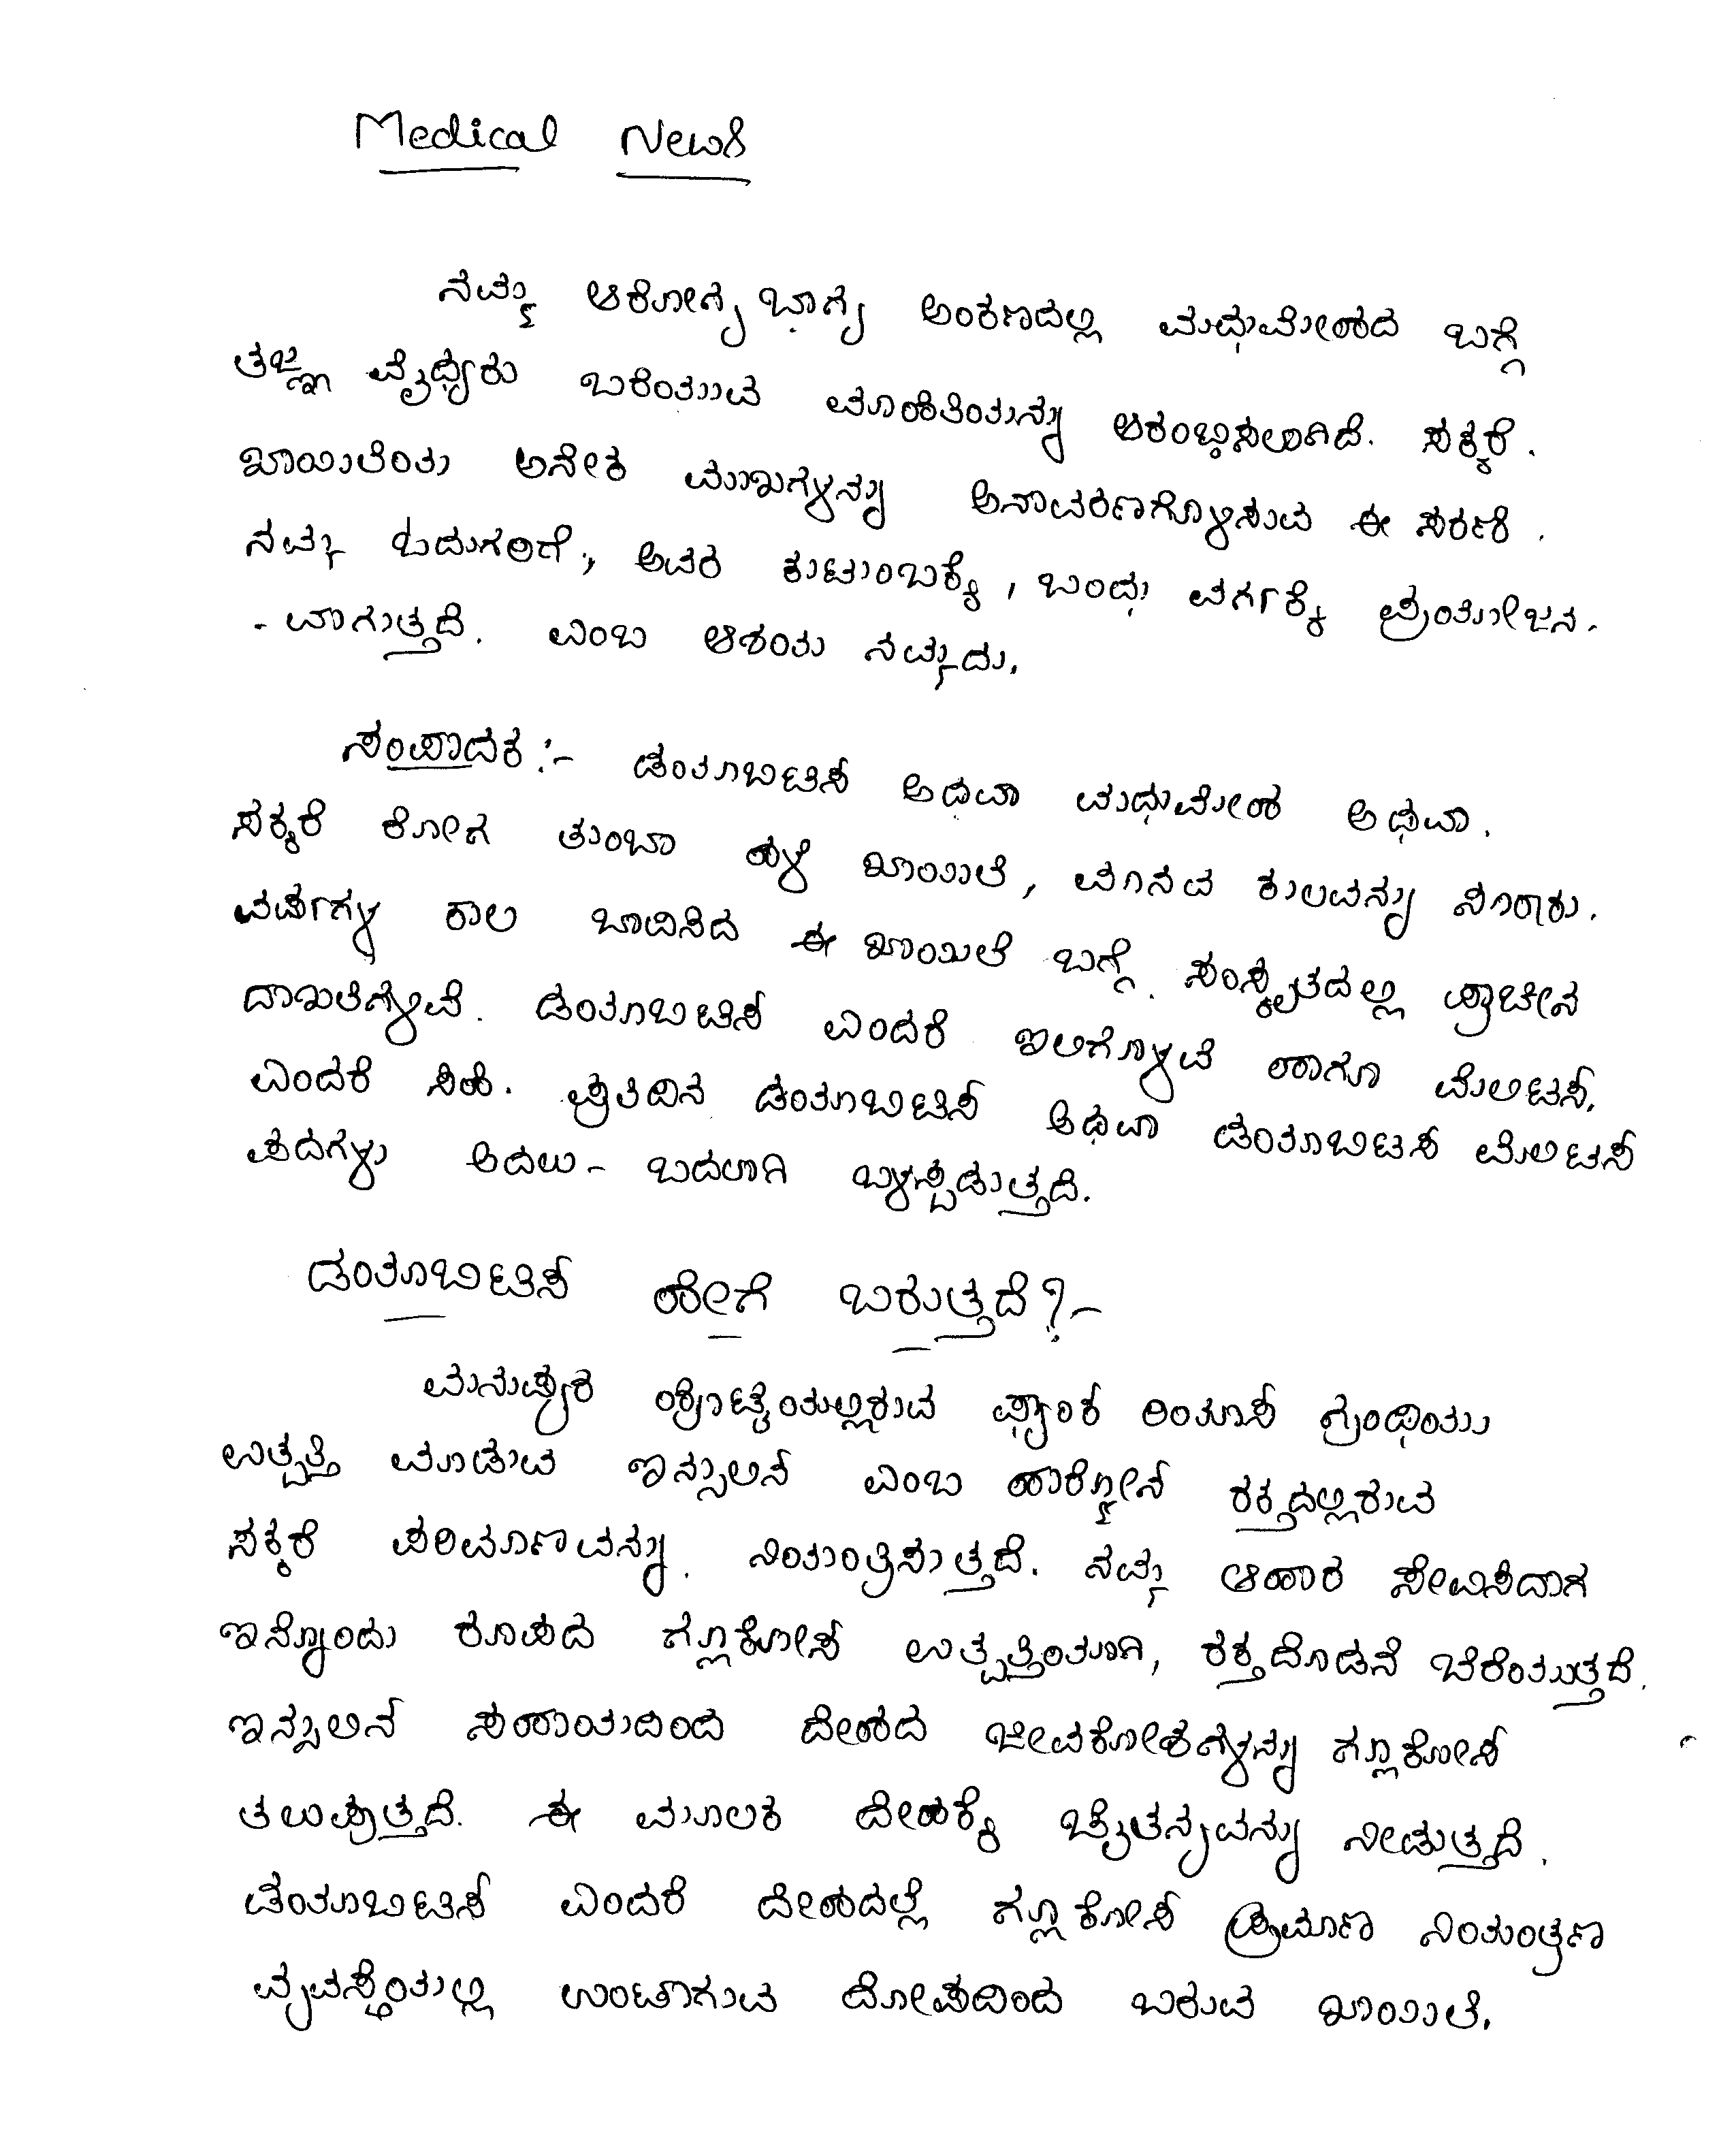 Medical News
ನಮ್ಮ ಆರೋಗ್ಯ ಭಾಗ್ಯ ಅಂಕಣದಲ್ಲಿ ಮಧುಮೇಹದ ಬಗ್ಗೆ
ತಜ್ಞ ವೈದ್ಯರು ಬರೆಯುವ ಮಾಹಿತಿಯನ್ನು ಆರಂಭಿಸಲಾಗಿದೆ. ಸಕ್ಕರೆ.
ಖಾಯಿಲೆಯ ಅನೇಕ ಮುಖಗಳನ್ನು ಅನಾವರಣಗೊಳಿಸುವ ಈ ಸರಣಿ.
ನಮ್ಮ ಓದುಗರಿಗೆ, ಅವರ ಕುಟುಂಬಕ್ಕೆ, ಬಂಧು ವರ್ಗಕ್ಕೆ ಪ್ರಯೋಜನ-
-ವಾಗುತ್ತದೆ. ಎಂಬ ಆಶಯ ನಮ್ಮದು.
ಸಂಪಾದಕ :- ಡಯಾಬಿಟಿಸ್ ಅಥವಾ ಮಧುಮೇಹ ಅಥವಾ.
ಸಕ್ಕರೆ ರೋಗ ತುಂಬಾ ಹಳೆ ಖಾಯಿಲೆ, ಮಾನವ ಕುಲವನ್ನು ನೂರಾರು.
ವರ್ಷಗಳ ಕಾಲ ಬಾಧಿಸಿದ ಈ ಖಾಯಿಲೆ ಬಗ್ಗೆ. ಸಂಸ್ಕೃತದಲ್ಲಿ ಪ್ರಾಚೀನ
ದಾಖಲೆಗಳಿವೆ. ಡಯಾಬಿಟಿಸ್ ಎಂದರೆ ಇಲಿಗೊಳವೆ ಹಾಗೂ ಮೆಲಿಟಸ್.
ಎಂದರೆ ಸಿಹಿ. ಪ್ರತಿದಿನ ಡಯಾಬಿಟಿಸ್ ಅಥವಾ ಡಯಾಬಿಟಿಸ್ ಮೆಲಿಟಸ್
ಪದಗಳು ಅದಲು-ಬದಲಾಗಿ ಬಳಸ್ಪಡುತ್ತದೆ.
ಡಯಾಬಿಟಿಸ್ ಹೇಗೆ ಬರುತ್ತದೆ?-
ಮನುಷ್ಯರ ಹೊಟ್ಟೆಯಲ್ಲಿರುವ ಪ್ಯಾಂಕ್ರಿಯಾಸ್ ಗ್ರಂಥಿಯು
ಉತ್ಪತ್ತಿ ಮಾಡುವ ಇನ್ಸುಲಿನ್ ಎಂಬ ಹಾರ್ಮೋನ್ ರಕ್ತದಲ್ಲಿರುವ
ಸಕ್ಕರೆ ಪರಿಮಾಣವನ್ನು. ನಿಯಂತ್ರಿಸುತ್ತದೆ. ನಮ್ಮ ಆಹಾರ ಸೇವಿಸಿದಾಗ
ಇನ್ನೊಂದು ರೂಪದ ಗ್ಲೂಕೋಸ್ ಉತ್ಪತ್ತಿಯಾಗಿ, ರಕ್ತದೊಡನೆ ಬೆರೆಯುತ್ತದೆ.
ಇನ್ಸುಲಿನ್ ಸಹಾಯದಿಂದ ದೇಹದ ಜೀವಕೋಶಗಳನ್ನು ಗ್ಲೂಕೋಸ್
ತಲುಪುತ್ತದೆ. ಈ ಮೂಲಕ ದೇಹಕ್ಕೆ ಚೈತನ್ಯವನ್ನು ನೀಡುತ್ತದೆ.
ಡಯಾಬಿಟಿಸ್ ಎಂದರೆ ದೇಹದಲ್ಲಿ ಗ್ಲೂಕೋಸ್ ಪ್ರಮಾಣ ನಿಯಂತ್ರಣ
ವ್ಯವಸ್ಥೆಯಲ್ಲಿ ಉಂಟಾಗುವ ದೋಷದಿಂದ ಬರುವ ಖಾಯಿಲೆ.